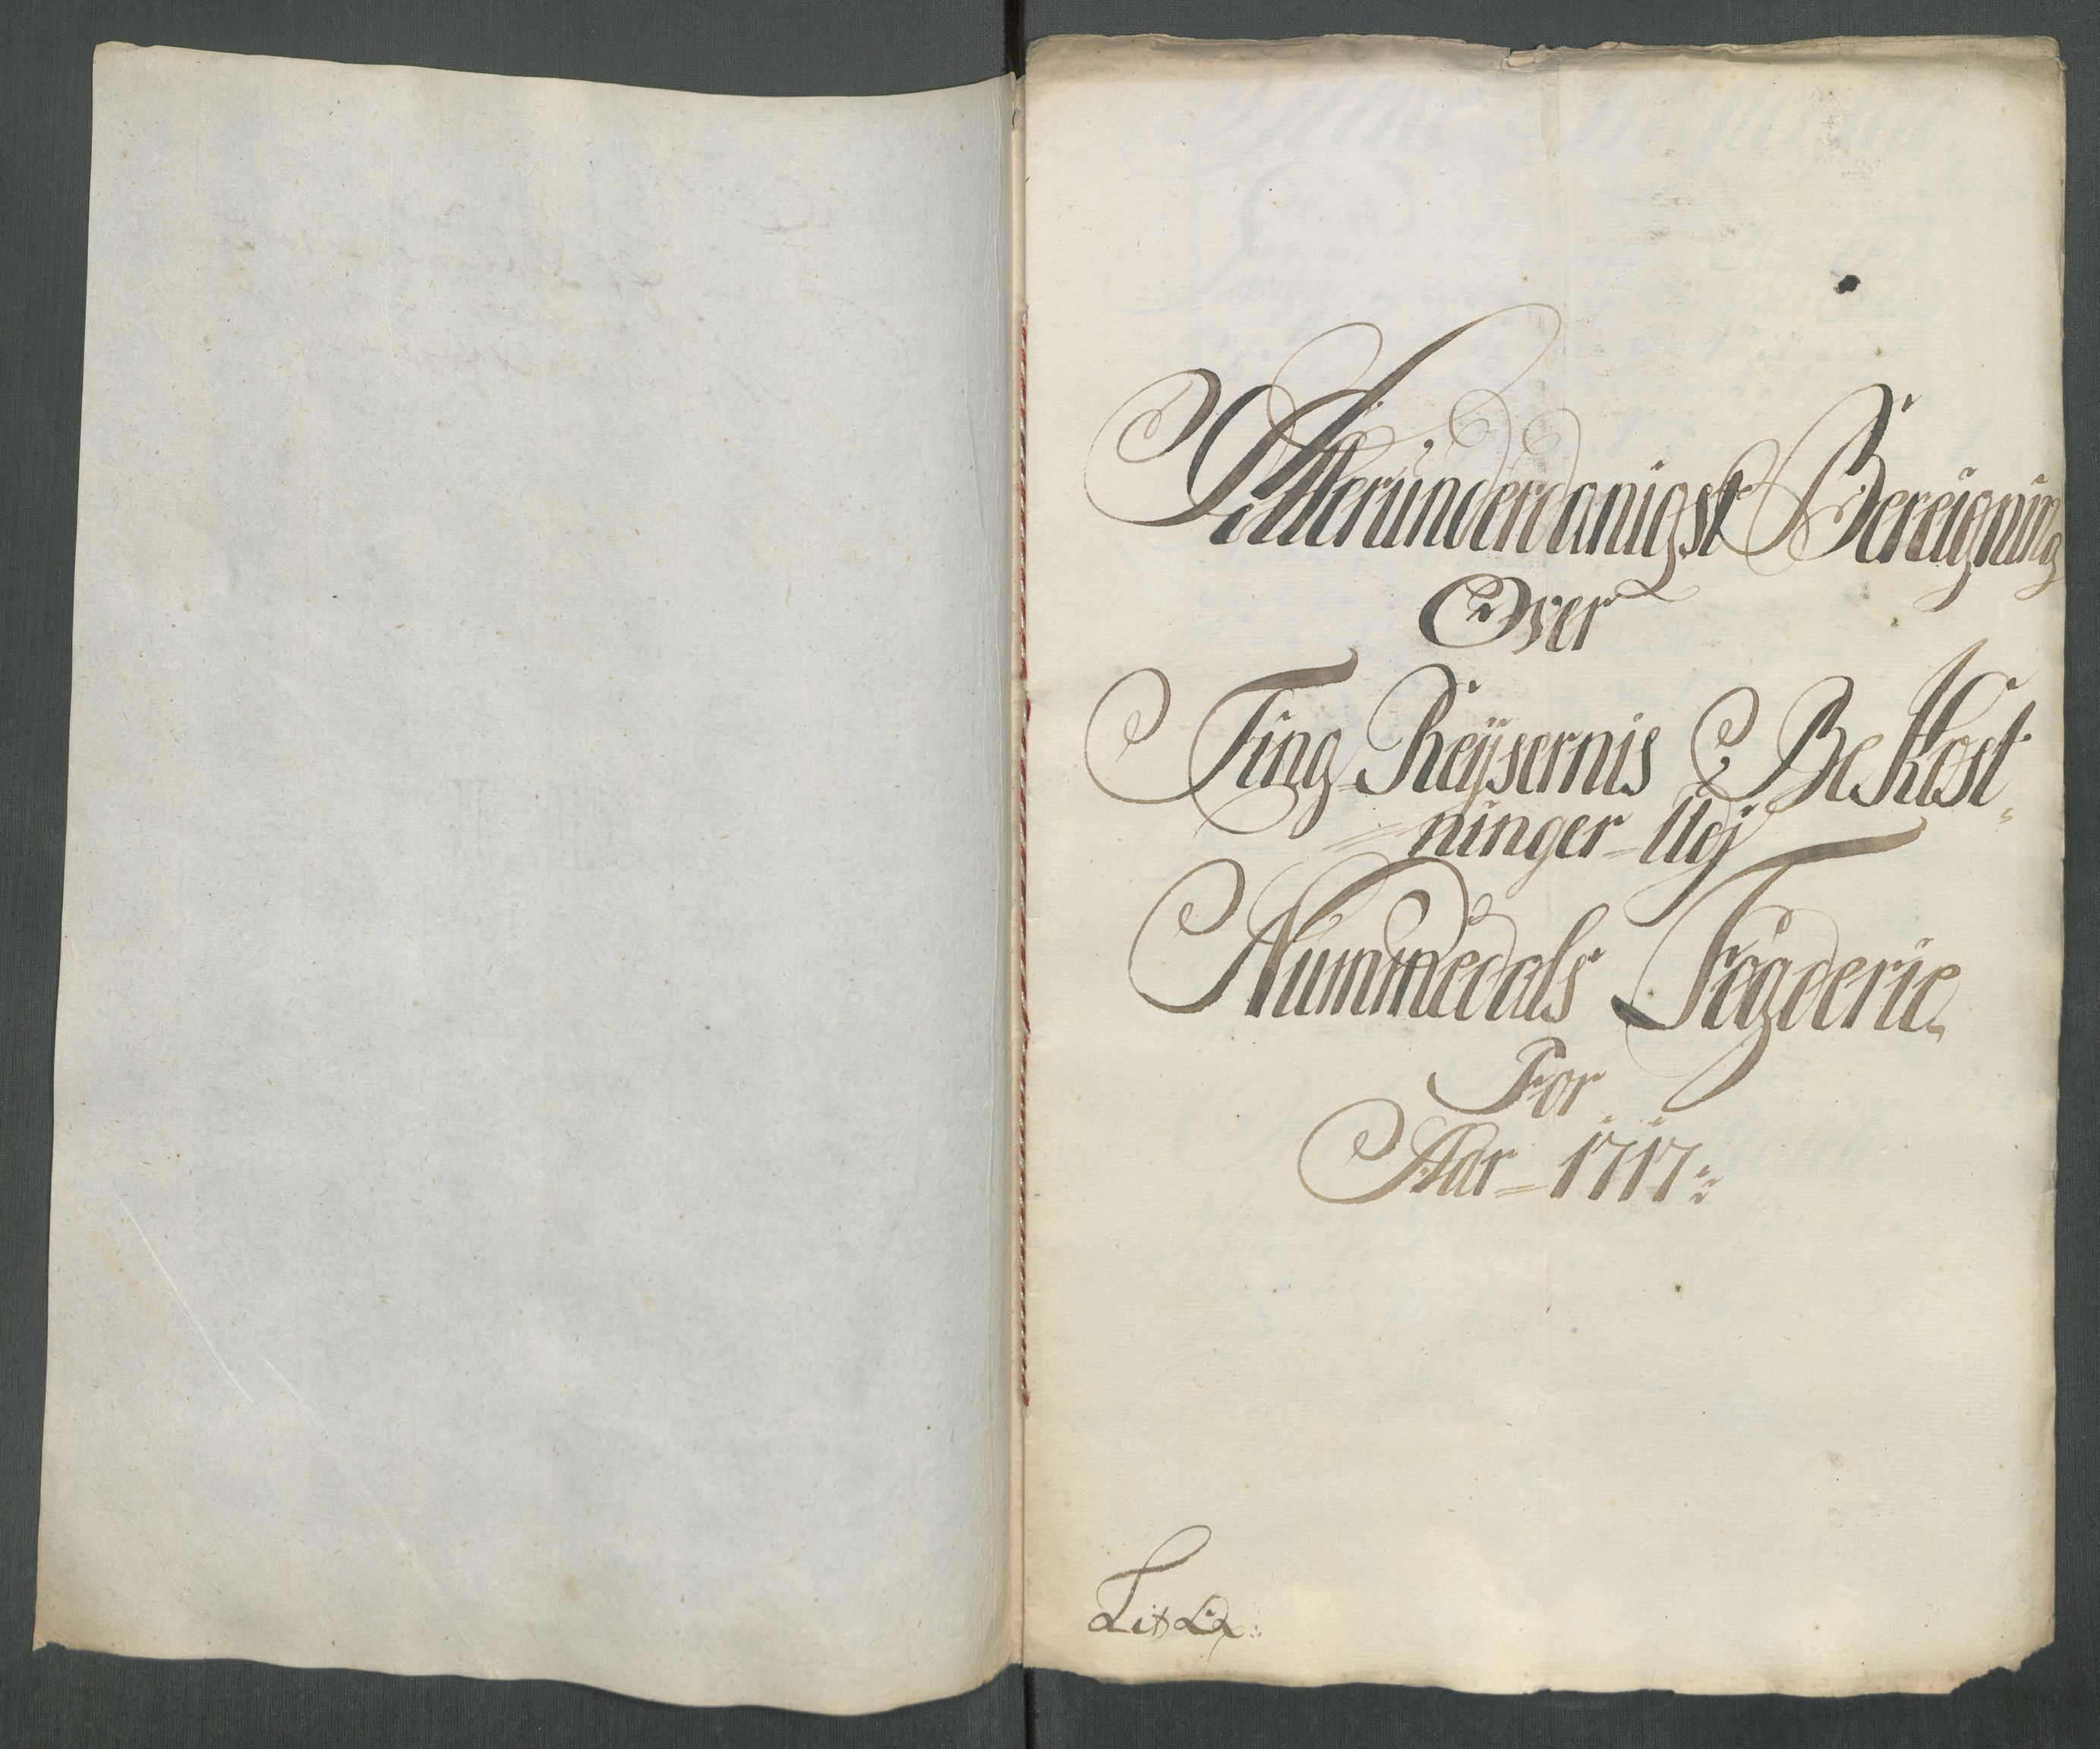 Allerunderdanigst Bereigning
Over
Ting-Reÿsernis Bekost-
ninger udj
Nummedals Fogderie
For
Aar 1717
Lit